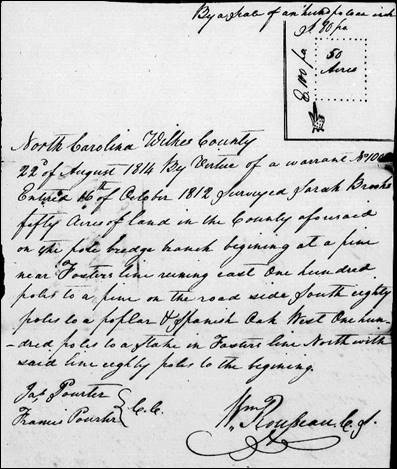 By a Scale of an hund poles an inch
S 80 po
E 100 po
50
Acres
North Carolina Wilkes County
22d of August 1814 By Virtue of a warrant No
Enterd 16th of October 1812 Surveyed Sarah Brooks
fifty Acres of land in the County aforesaid
on the pole bredge branch begining at a pine
near or Fosters line runing east One hundred
poles to a pine on the road side South eighty
poles to a poplar & Spanish Oak West One hun
-dred poles to a Stake in Fosters line North with
said line eighty poles to the begining.
Jas Pourter
Francis Pourter } C.C.
Wm Rousseau C.S.